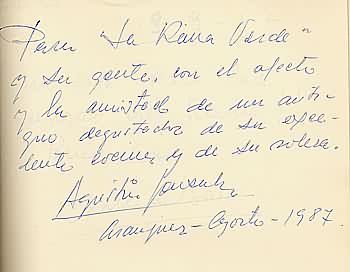 Para "La Rana Verde"
y su gente, con el afecto
y la amistad de un anti-
guo degustador de su exce-
lente cocina y de su solera.
Agustín
Aranjuez - Agosto - 1987.